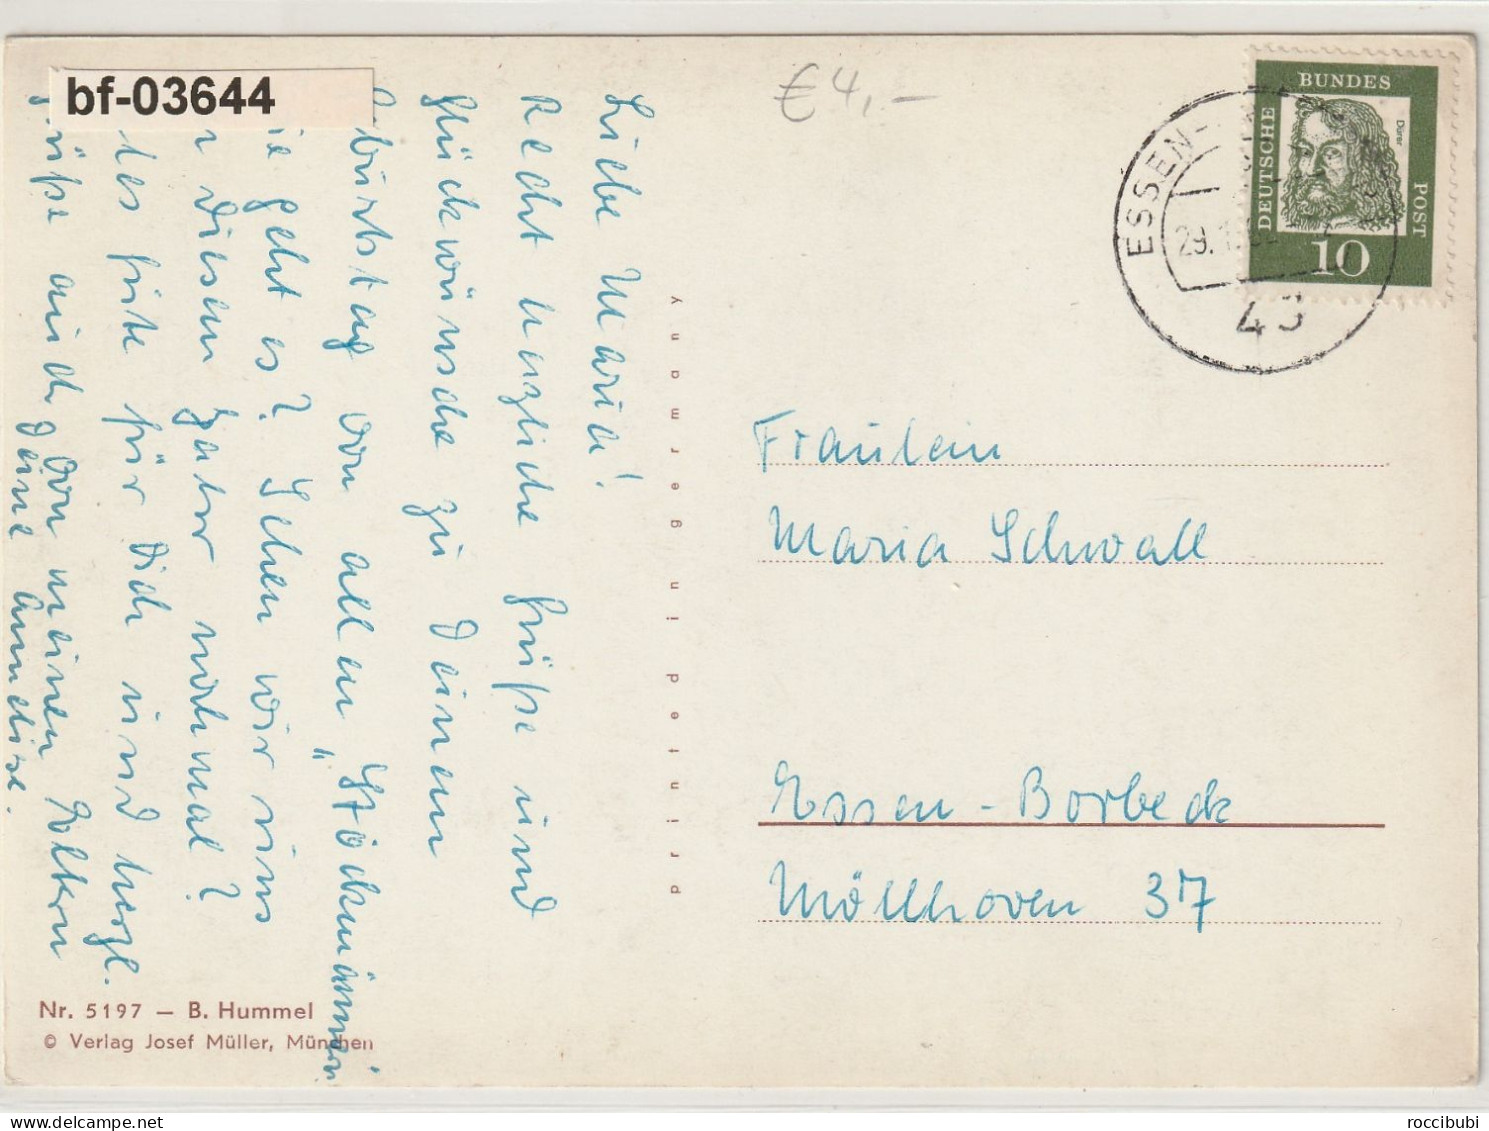 bf-03644
€ 4,-
Liebe Maria!
Recht herzliche Grüße und
Glückwünsche zu Deinem
burtstag von allen „Stöckmännern
geht es? Sehen wir uns
diesem Jahr nochmal?
tes Gute für Dich und herzl.
Grüße auch von meinen Eltern
Deine Anneliese.
printed in germany
Nr. 5197 — B. Hummel
© Verlag Josef Müller, München
ESSEN-
29.1.62
43
DEUTSCHE
BUNDES
POST
Dürer
10
Fräulein
Maria Schwall
Essen-Borbeck
Möllhoven 37
roccibubi